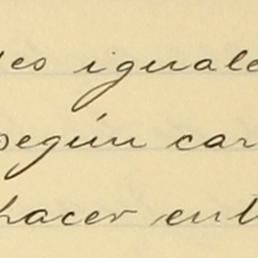 es iguale
según car
hacer ent